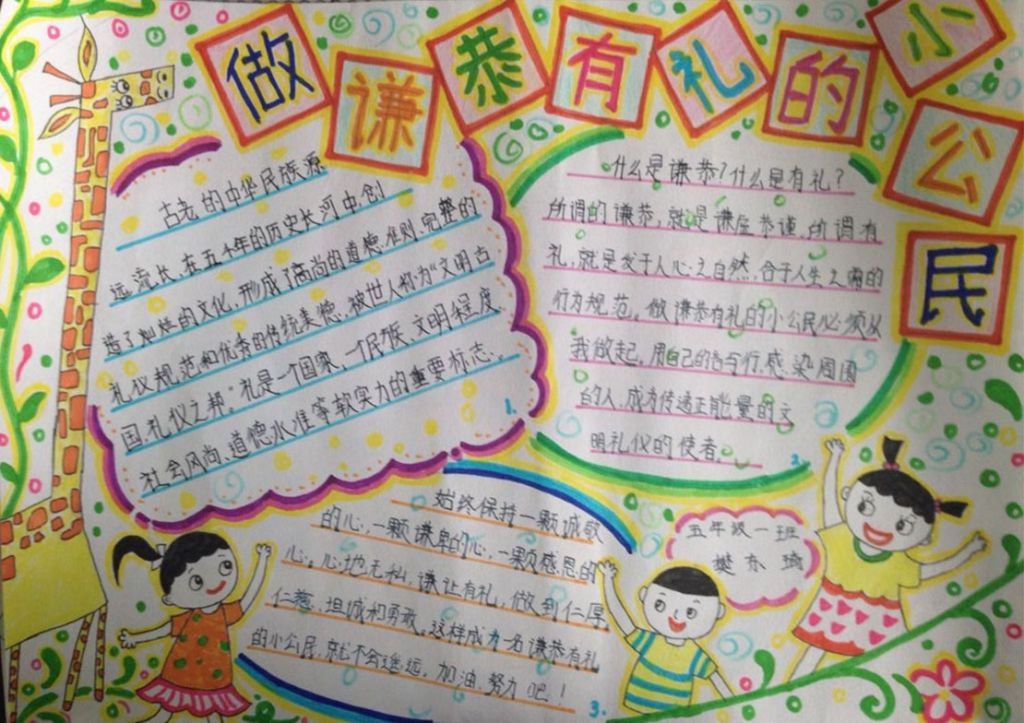 做谦恭有礼的小公民
古老的中华民族源
远流长、在五千年的历史长河中创
造了灿烂的文化,形成了高尚的道德、准则、完整的
礼仪规范和优秀的传统美德,被世人称为“文明古
国,礼仪之邦”。礼是一个国家、一个民族、文明程度、
社会风尚、道德水准等软实力的重要标志。
1.
什么是谦恭?什么是有礼?
所谓的谦恭,就是谦虚恭谨,所谓有
礼,就是发于人心之自然,合于人生之需的
行为规范。做谦恭有礼的小公民必须从
我做起,用自己的言与行感染周围
的人,成为传递正能量的文
明礼仪的使者。
2.
始终保持一颗诚敬
的心,一颗谦卑的心,一颗感恩的
心。心地无私,谦让有礼,做到仁厚
仁慈,坦诚和勇敢。这样成为一名谦恭有礼
的小公民就不会遥远。加油,努力吧!
3.
五年级一班
樊东琦